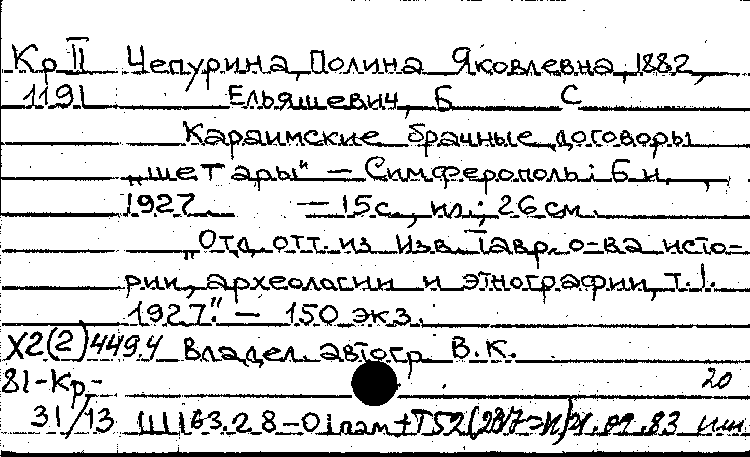 Кр II Чепурина, Полина Яковлевна, 1882,
1191 Ельяшевич, Б С
Караимские брачные договоры
„шетары" — Симферополь: Б.и.,
1927. — 15 с., ил.; 26 см.
„Отд. отт. из Изв. Тавр. о-ва исто-
рии, археологии и этнографии, т. 1.
1927." — 150 экз.
X2(2)449.4 Владел. автогр. В.К.
81-Кр- 20
31/13 63.2 8-01 пам +Т52